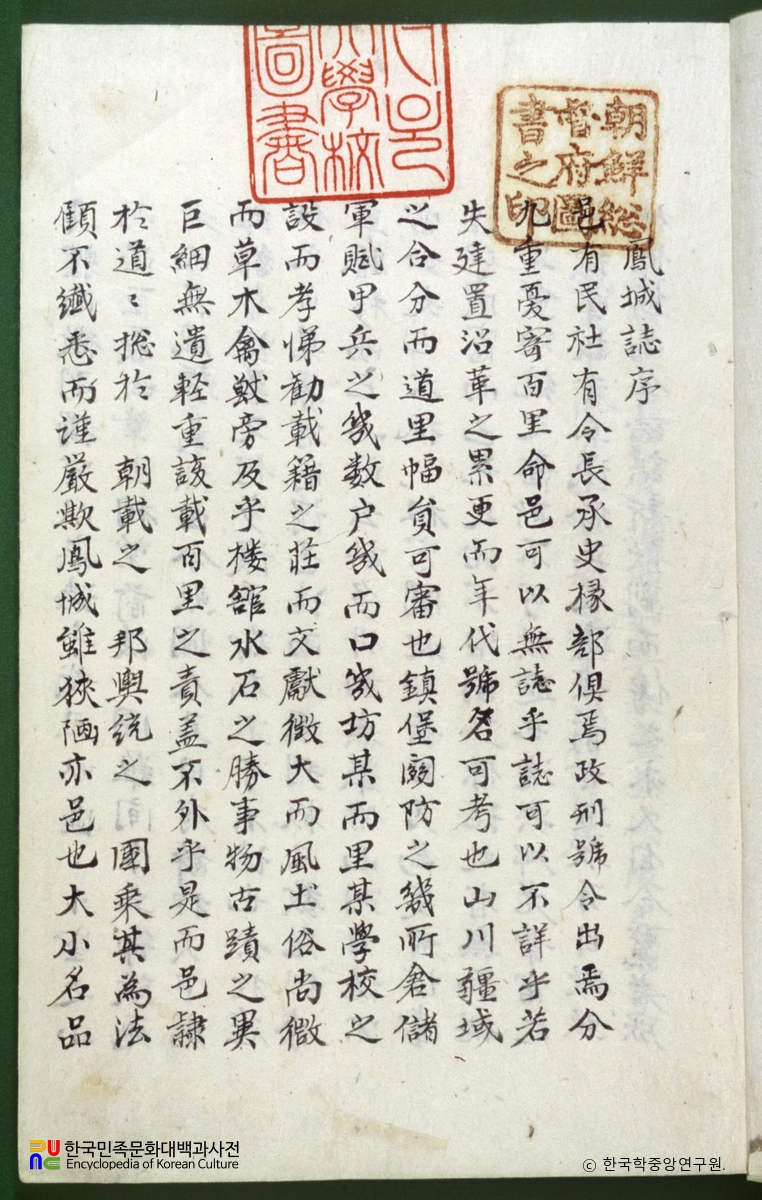 朝鮮総
督府圖
書之印
學校
圖書
鳳城誌序
邑有民社有令長承史椽部俱焉政刑號令出焉分
九重憂寄百里命邑可以無誌乎誌可以不詳乎若
失建置沿革之累更而年代號名可考也山川疆域
之合分而道里幅負可審也鎮堡関防之幾所倉儲
軍賦甲兵之幾数户幾而口幾坊某而里某學校之
設而孝悌勸載籍之莊而文獻徴大而風土俗尚微
而草木禽獣旁及乎楼舘水石之勝事物古蹟之異
巨細無遺軽重該載百里之責盖不外乎是而邑隷
於道〻揔於 朝載之 邦輿統之 國乗其為法
顧不纎悉而謹嚴欺鳳城雖狹陋亦邑也大小名品
한국민족문화대백과사전
Encyclopedia of Korean Culture
ⓒ 한국학중앙연구원.